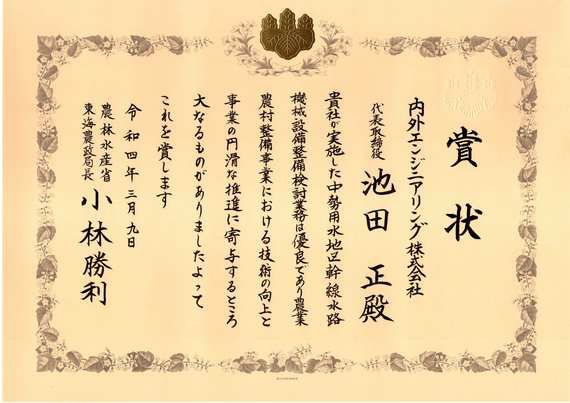 賞状
内外エンジニアリング株式会社
代表取締役 池田 正殿
貴社が実施した中勢用水地区幹線水路
機械設備整備検討業務は優良であり農業
農村整備事業における技術の向上と
事業の円滑な推進に寄与するところ
大なるものがありましたよって
これを賞します
令和四年三月九日
農林水産省
東海農政局長 小林勝利